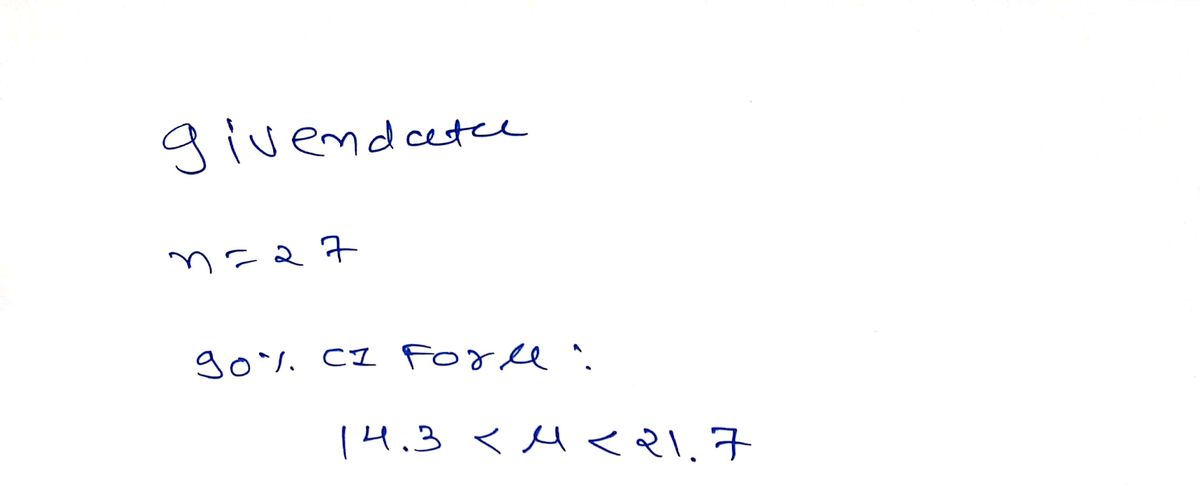 given data
n = 27
90% CI For μ :
14.3 < μ < 21.7